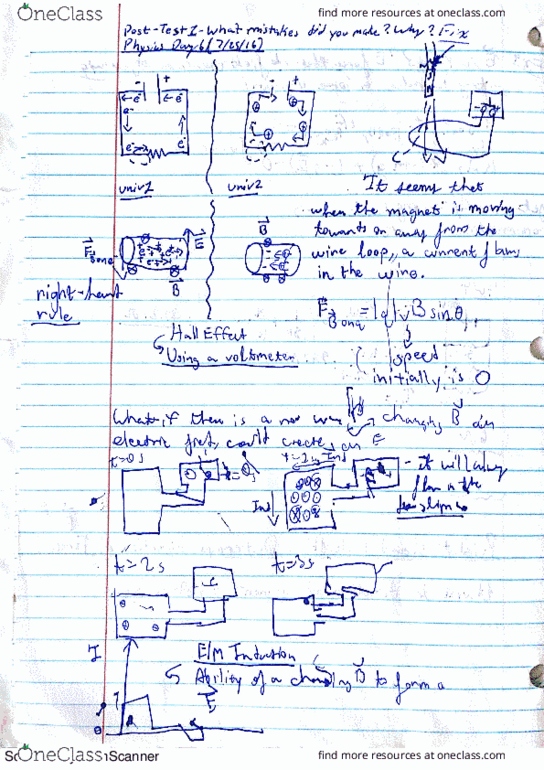 OneClass
find more resources at oneclass.com
Post-Test I - What mistakes did you make? Why? Fix
Physics Day 6 (7/25/16)
- +
univ 1
univ 2
It seems that
when the magnet is moving
towards or away from the
wire loop, a current flows
in the wire.
F B on q
E
B
B
right-hand
rule
F B on q = |q| v B sinθ
speed
initially is 0
Hall Effect
Using a voltmeter
What if there is a new way changing B
electric field could create an E
t=0s
t=1s
Ind
Ind
- it will always
flow in the
t=2s
t=3s
E/M Induction
Ability of a changing B to form a
E
I
OneClass
Scanner
find more resources at oneclass.com